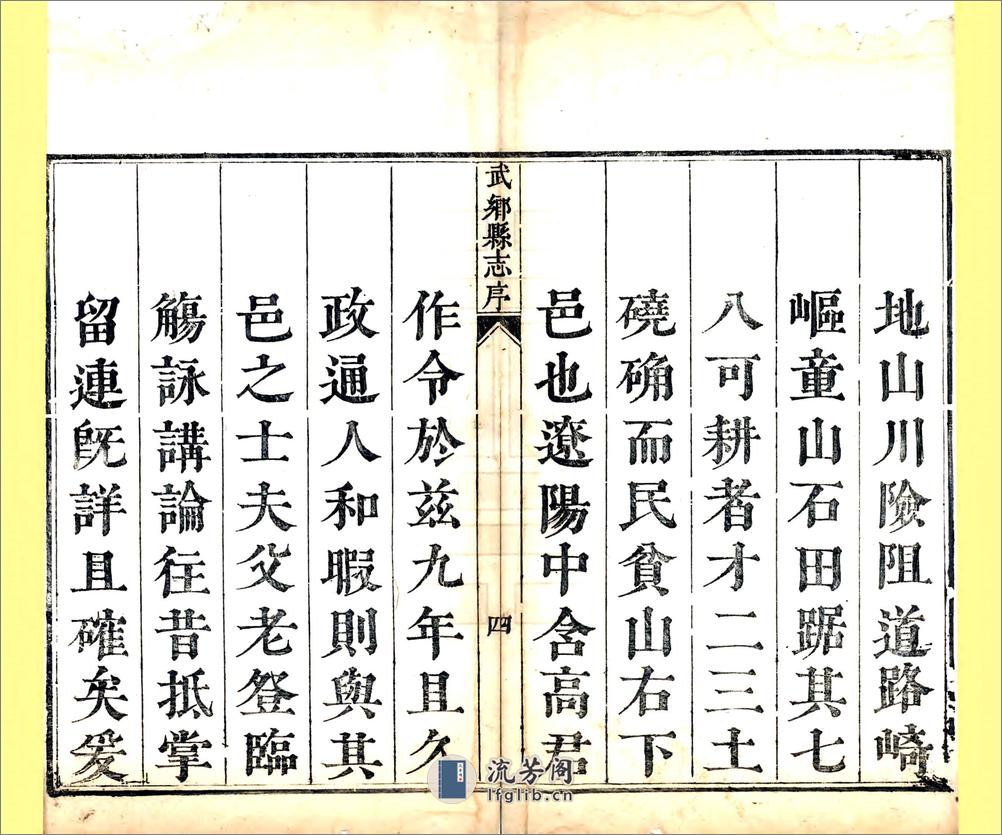 地山川險阻道路崎
嶇童山石田踞其七
八可耕者才二三土
磽确而民貧山右下
邑也遼陽中含高君
武鄉縣志序
四
作令於茲九年且久
政通人和暇則與其
邑之士夫父老登臨
觴詠講論往昔抵掌
留連既詳且確矣爰
流芳阁
lfglib.cn